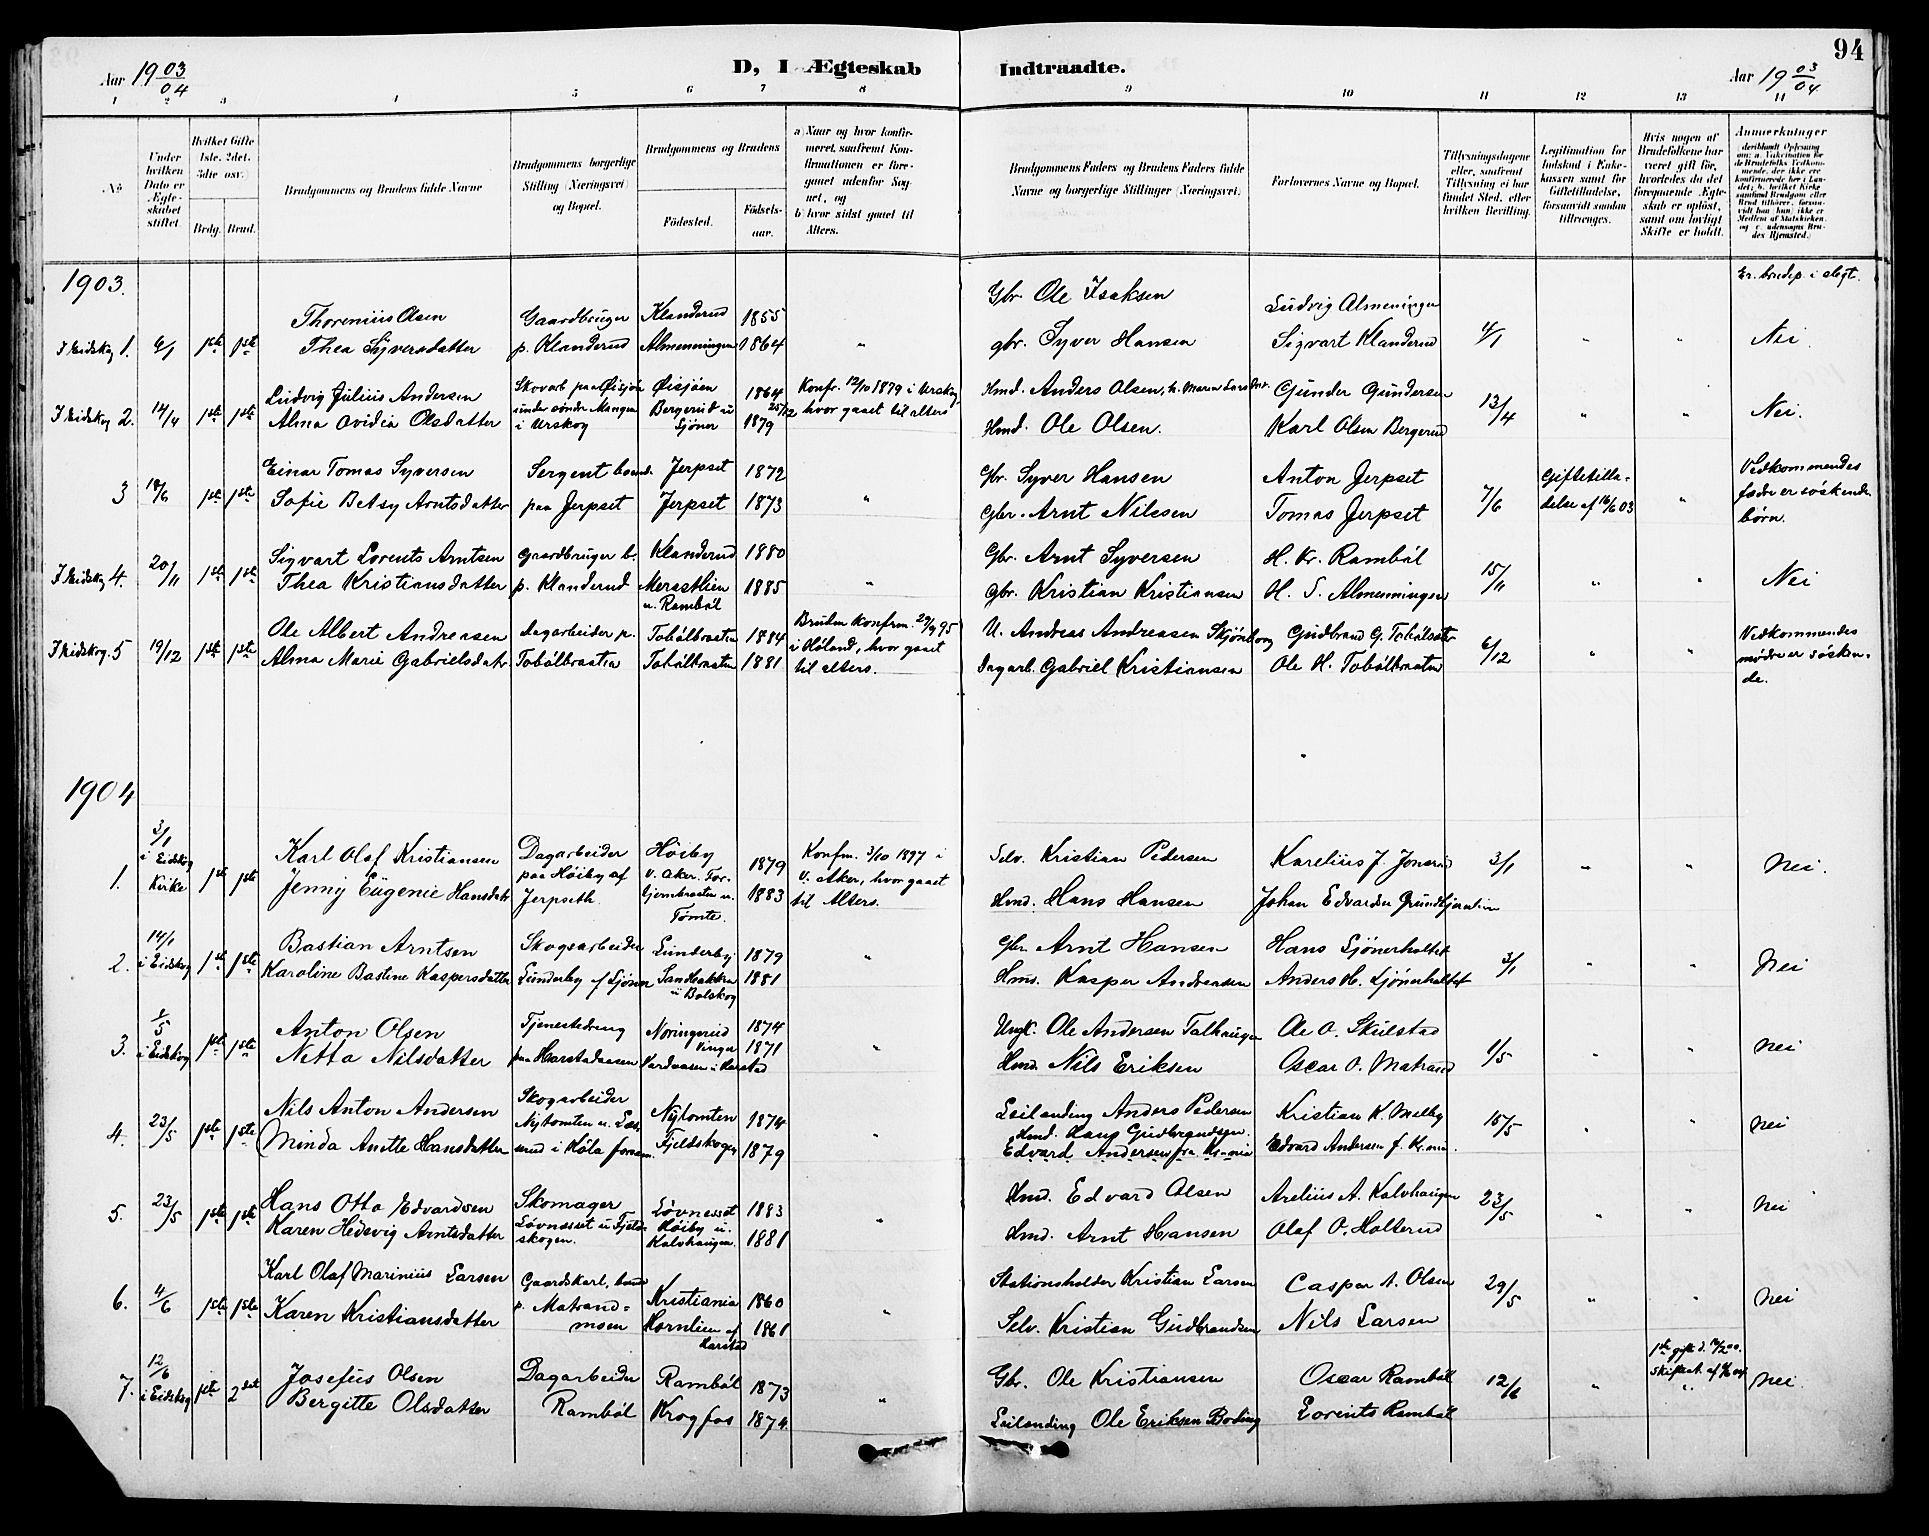 94
Aar 1903/04
D, I Ægteskab Indtraadte.
Aar 1903/04
1 2 3 4 5 6 7 8 9 10 11 12 13 14
No
Under hvilken Dato er Ægteskabet stiftet.
Hvilket Gifte 1ste, 2det, 3die osv.
Brdg. Brud.
Brudgommens og Brudens fulde Navne
Brudgommens borgerlige Stilling (Næringsvei) og Bopæl.
Brudgommens og Brudens
Fødested. Fødselsaar.
a) Naar og hvor konfirmeret, saafremt Konfirmationen er foregaaet udenfor Sognet, og
b) hvor sidst gaaet til Alters.
Brudgommens Faders og Brudens Faders fulde Navne og borgerlige Stillinger (Næringsvei).
Forlovernes Navne og Bopæl.
Tillysningsdagene eller, saafremt Tillysning ei har fundet Sted, efter hvilken Bevilling.
Legitimation for Indskud i Enkekassen samt for Giftetilladelse, forsaavidt saadan tiltrænges.
Hvis nogen af Brudefolkene har været gift før, hvorledes da det foregaaende Ægteskab er opløst, samt om lovligt Skifte er holdt.
Anmærkninger
1903.
Er brudep. i slegt.
I Eidskog 1. 6/1 1ste 1ste
Thorenius Olsen Gaardbruger Klanderud 1855
Thea Syversdatter p. Klanderud Almenningen 1864 "
Gbr. Ole Isaksen Ludvig Almeningen
gbr. Syver Hansen Sigvart Klanderud 4/1 " " Nei.
I Eidskog 2. 14/4 1ste 1ste
Ludvig Julius Andersen Skovarb paa Øisjøen under søndre Mangen i Urskog Øisjøen 1864
Alma Ovidia Olsdatter Bergerud u Sjöner 25/12 1879
Konf. 12/10 1879 i Urskog, hvor gaaet til alters
Hmd. Anders Olsen, Gunder Gundersen
Hmd. Ole Olsen. Karl Olsen Bergerud 13/4 " " Nei.
3 18/6 1ste 1ste
Einar Tomas Syversen Sergent boend. Jerpset 1872
Sofie Betsy Arntsdatter paa Jerpset Jerpset 1873 "
Gbr. Syver Hansen Anton Jerpset
Gbr. Arnt Nilsen Tomas Jerpset 7/6
Giftetilladelse af 16/6 03 "
Vedkommendes fædre er söskendebörn.
I Eidskog 4. 20/11 1ste 1ste
Sigvart Lorents Arntsen Gaardbruger b. Klanderud 1880
Thea Kristiansdatter p. Klanderud u. Rambøl 1885 "
Gbr. Arnt Syversen H. Kr. Rambøl
gbr. Kristian Kristiansen H. S. Almenningen 15/11 " " Nei
I Eidskog. 5 19/12 1ste 1ste
Ole Albert Andreasen Dagarbeider p. Tobölbraaten 1884
Alma Marie Gabrielsdatr Tobölbraaten Tobölbraaten 1881
Bruden konfrm. 29/9 95 i Höland, hvor gaaet til alters.
U. Andreas Andreassen Skjönborg Gudbrand G. Tobölsætr
Dagarb. Gabriel Kristiansen Ole H. Tobölbraaten 6/12 " "
Vedkommendes mødre er søskende.
1904
1. 3/1 i Eidskog Kirke 1ste 1ste
Karl Olaf Kristiansen Dagarbeider paa Höiby af Jerpseth Höiby v. Aker. 1879
Jenny Eugenie Hansdatr Tømte. 1883
Konfm. 3/10 1897 i V. Aker, hvor gaaet til Alters.
Selv. Kristian Pedersen Karelius J.
Hmd. Hans Hansen Johan Edvardsen 3/1 " " Nei.
2. 14/1 i Eidskog 1ste 1ste
Bastian Arntsen Skogsarbeider Lunderby 1879
Karoline Bastine Kaspersdatter Lunderby af Sjöner Sandbakken u Bolskog 1881 "
Gbr Arnt Hansen Hans Sjönerholtet
Hmd. Kasper Andreassen Anders H. Sjönerholtet 3/1 " " Nei
3. 8/5 i Eidskog 1ste 1ste
Anton Olsen Tjenestedreng Noringerud Vinger 1874
Netta Nilsdatter paa Harstadaasen Vardaasen u Harstad 1871 "
Ungk. Ole Andersen Talhaugen Ole O. Skulstad
Hmd. Nils Eriksen Oscar O. Matrand 1/5 " " Nei
4. 23/5 1ste 1ste
Nils Anton Andersen Skogarbeider Nytomten 1874
Minda Anette Hansdatter Fjeldskogen 1879 "
Leilending Anders Pedersen Kristian K. Melby
Hmd. Hans Gudbrandsen.
Edvard Andersen fra Kr-nia Edvard Andersen f. Kr.nia. 15/5 " " Nei
5. 23/5 1ste 1ste
Hans Otto Edvardsen Skomager Lövnesset u Fjeldskogen. Lövnesset 1883
Karen Hedevig Arntsdatter Höiby u. Kalvhaugen. 1881 "
Hmd. Edvard Olsen Arelius A. Kalvhaugen
Hmd. Arnt Hansen Olaf O. Holterud 23/5 " " Nei
6. 4/6 1ste 1ste
Karl Olaf Marinius Larsen Gaardskarl, boend p. Matrandmoen Kristiania 1860
Karen Kristiansdatter Kornlien af Harstad 1861 "
Stationsholder Kristian Larsen Casper A. Olsen
Selv. Kristian Gudbrandsen Nils Larsen 29/5 " " Nei
7. 12/6 i Eidskog 1ste 2det
Josefus Olsen Dagarbeider Rambøl 1873
Bergitte Olsdatter Rambøl Krogfos 1874. "
Gbr. Ole Kristiansen Oscar Rambøl
Leilending Ole Eriksen Boding Lorents Rambøl 12/6 " Nei